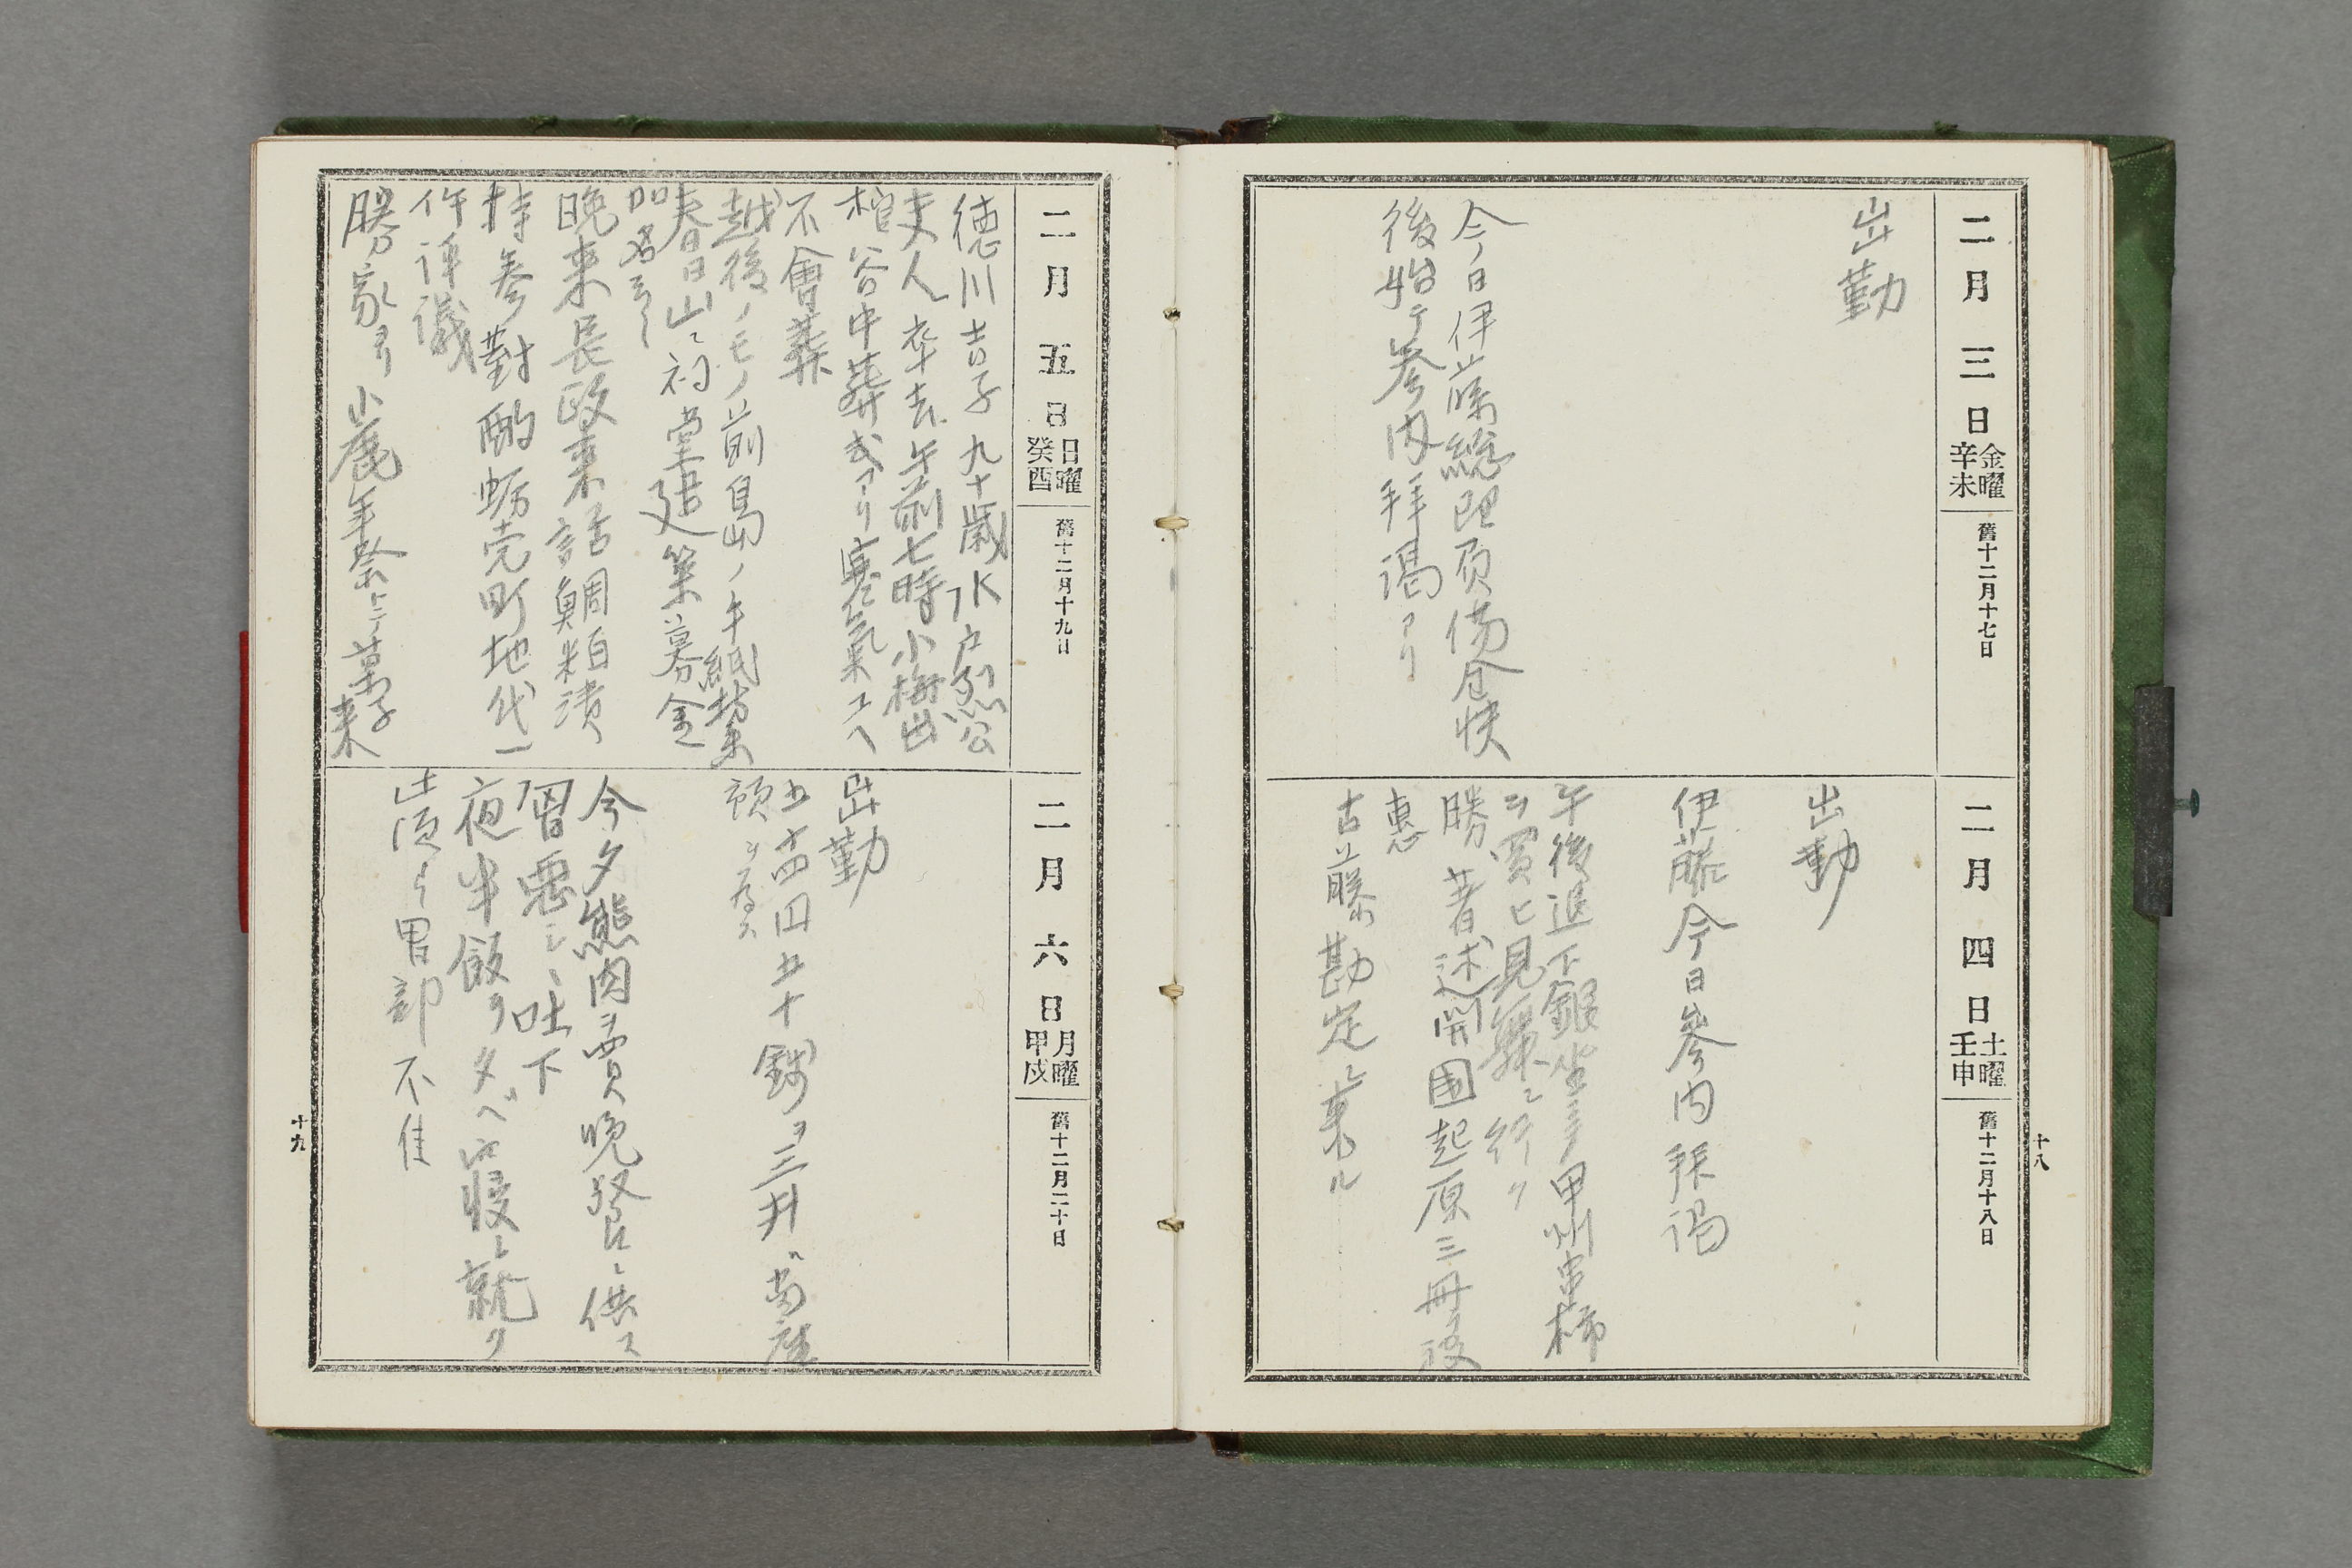 二月三日
金曜
辛未
舊十二月十七日
出勤
今日伊藤総理負傷全快
後始テ参内拜謁アリ
二月四日
土曜
壬申
舊十二月十八日
出勤
伊藤今日参内拜謁
午後退下銀坐ニテ甲州串柿
ヲ買ヒ見舞ニ行ク
勝著述開國起原三冊被
惠
古藤勘定ニ来ル
十八
二月五日
日曜
癸酉
舊十二月十九日
徳川吉子九十歳水戸烈公
夫人卒去午前七時小梅出
棺谷中葬式アリ寒氣ユヘ
不會葬
越後ノモノ前島ノ手紙携来
春日山ニ祠堂建築募金
加名
晩来長政来話鯛粕漬
持参對酌蛎売町地代一
件評議
勝家ヨリ小鹿年祭ニテ菓子来
二月六日
月曜
甲戌
舊十二月二十日
出勤
五十四円五十銭ヲ三井当座
預ヲ為ス
今夕熊肉ヲ買晩餐ニ供ス
胃悪シ吐下
夜半飯ヲタベ寝ニ就ク
此頃ヨリ胃部不佳
十九